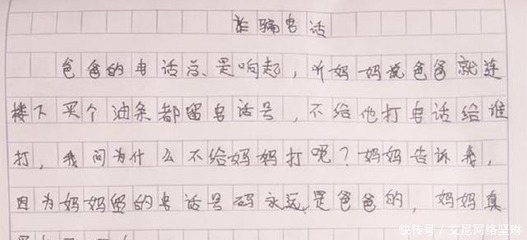 诈骗电话
爸爸的电话总是响起，听妈妈说爸爸就连
楼下买个油条都留电话号，不给他打电话给谁
打，我问为什么不给妈妈打呢？妈妈告诉我，
因为妈妈留的电话号码永远是爸爸的，妈妈真
快传号/艾尼网络整琳